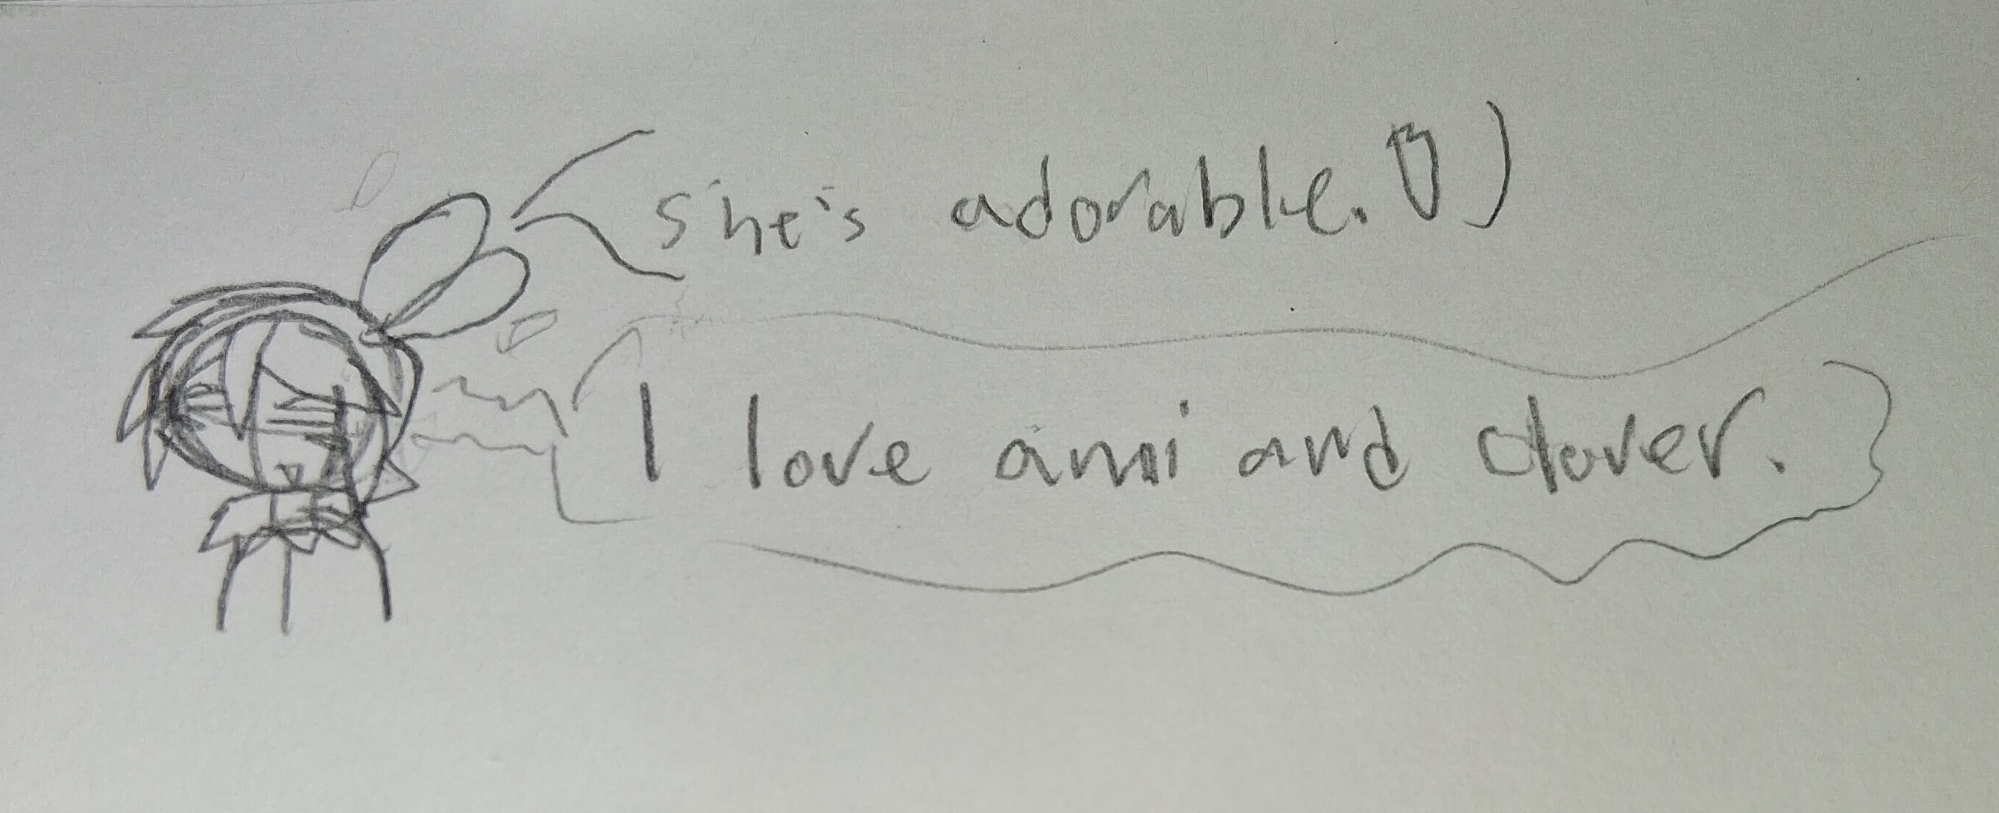 she's adorable.
I love ami and clover.